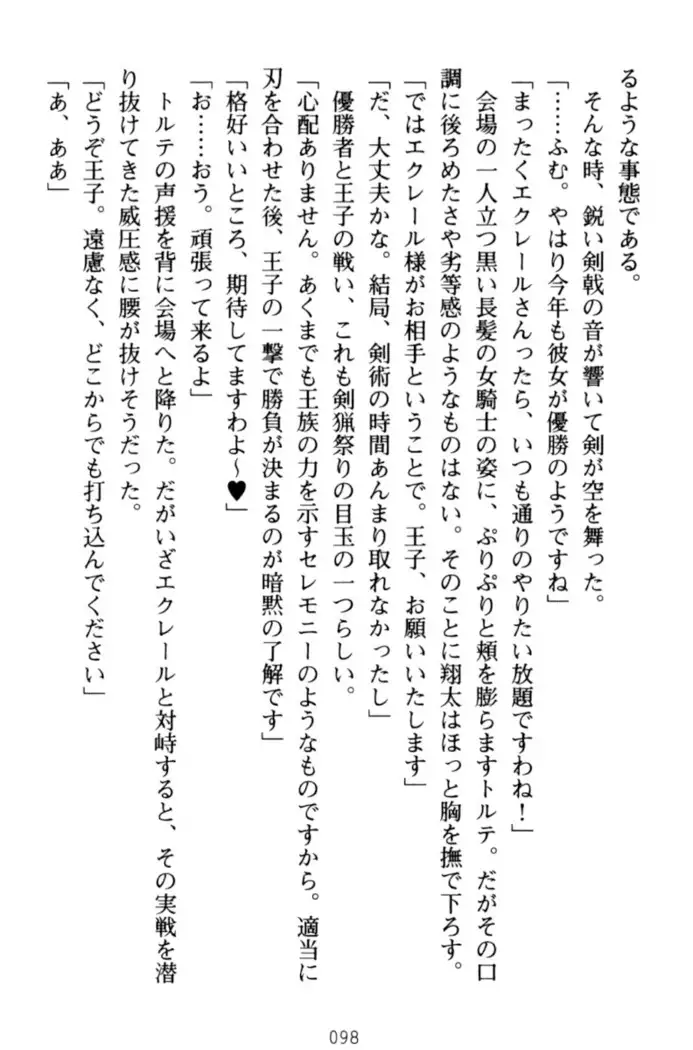 るような事態である。
　そんな時、鋭い剣戟の音が響いて剣が空を舞った。
「……ふむ。やはり今年も彼女が優勝のようですね」
「まったくエクレールさんったら、いつも通りのやりたい放題ですわね！」
　会場の一人立つ黒い長髪の女騎士の姿に、ぷりぷりと頬を膨らますトルテ。だがその口
調に後ろめたさや劣等感のようなものはない。そのことに翔太はほっと胸を撫で下ろす。
「ではエクレール様がお相手ということで。王子、お願いいたします」
「だ、大丈夫かな。結局、剣術の時間あんまり取れなかったし」
　優勝者と王子の戦い、これも剣猟祭りの目玉の一つらしい。
「心配ありません。あくまでも王族の力を示すセレモニーのようなものですから。適当に
刃を合わせた後、王子の一撃で勝負が決まるのが暗黙の了解です」
「格好いいところ、期待してますわよ～♥」
「お……おう。頑張って来るよ」
　トルテの声援を背に会場へと降りた。だがいざエクレールと対峙すると、その実戦を潜
り抜けてきた威圧感に腰が抜けそうだった。
「どうぞ王子。遠慮なく、どこからでも打ち込んでください」
「あ、ああ」
098